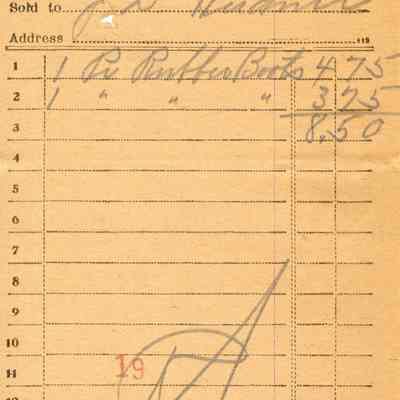 Sold to
Address
1 1 Pr Rubber Boots 4 75
2 1 " " " 3 75
3 8.50
4
5
6
7
8
9
10
11 19